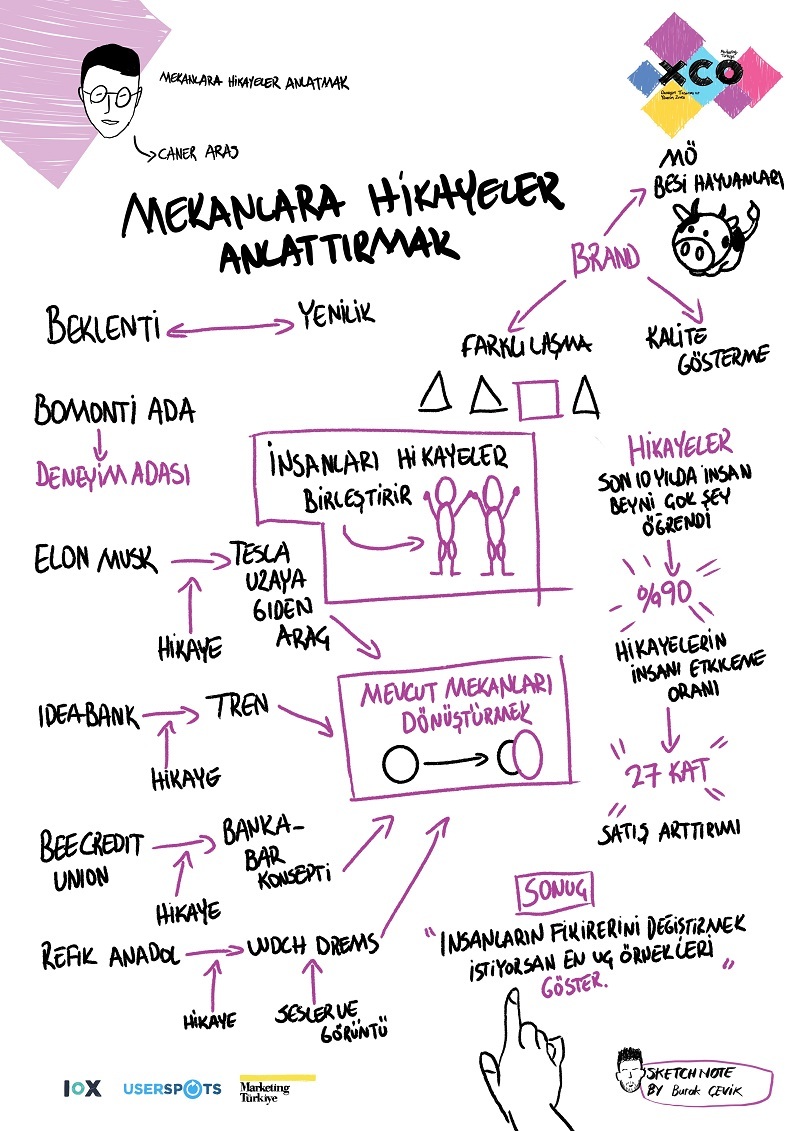 MEKANLARA HİKAYELER ANLATMAK
CANER ARAS
Marketing
Türkiye
XCO
Deneyim Tasarımı ve
Yönetim Zirvesi
MEKANLARA HİKAYELER
ANLATTIRMAK
MÖ
BESİ HAYVANLARI
BRAND
FARKLILAŞMA
KALİTE
GÖSTERME
BEKLENTİ
YENİLİK
BOMONTİ ADA
DENEYİM ADASI
İNSANLARI HİKAYELER
BİRLEŞTİRİR
HİKAYELER
SON 10 YILDA İNSAN
BEYNİ ÇOK ŞEY
ÖĞRENDİ
%90
HİKAYELERİN
İNSANI ETKİLEME
ORANI
27 KAT
SATIŞ ARTTIRIMI
ELON MUSK
TESLA
UZAYA
GİDEN
ARAÇ
HİKAYE
IDEABANK
TREN
HİKAYE
MEVCUT MEKANLARI
DÖNÜŞTÜRMEK
BEECREDIT
UNION
BANKA-
BAR
KONSEPTİ
HİKAYE
REFİK ANADOL
WDCH DREMS
HİKAYE
SESLER VE
GÖRÜNTÜ
SONUÇ
"İNSANLARIN FİKİRERİNİ DEĞİŞTİRMEK
İSTİYORSAN EN UÇ ÖRNEKLERİ
GÖSTER."
IOX
USERSPOTS
Marketing
Türkiye
SKETCHNOTE
BY Burak ÇEVİK